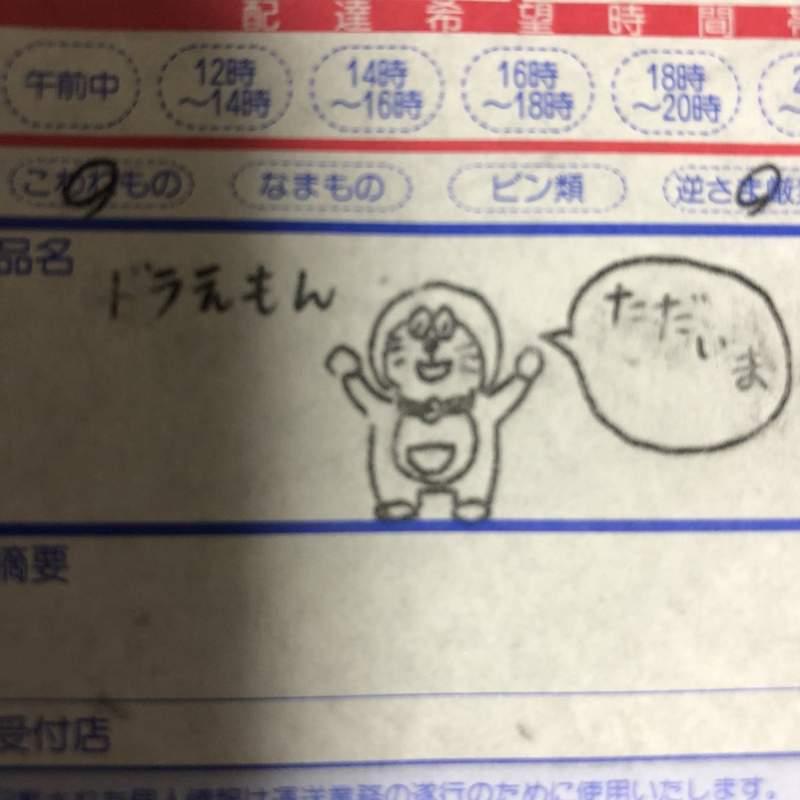 配達希望時間
午前中 12時～14時 14時～16時 16時～18時 18時～20時
こわれもの なまもの ビン類 逆さま厳
品名
ドラえもん
ただいま
摘要
受付店
人情報は運送業務の遂行のために使用いたします。